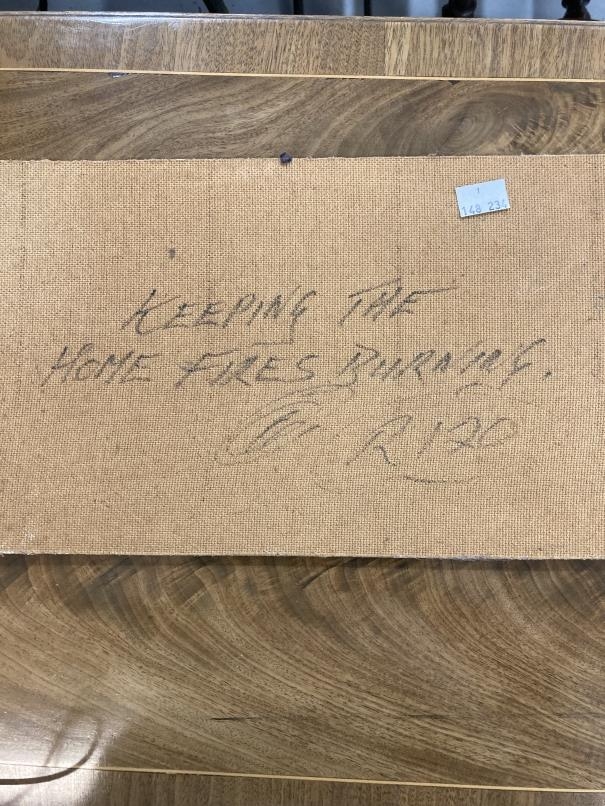 1
148 234
KEEPING THE
HOME FIRES BURNING.
R120